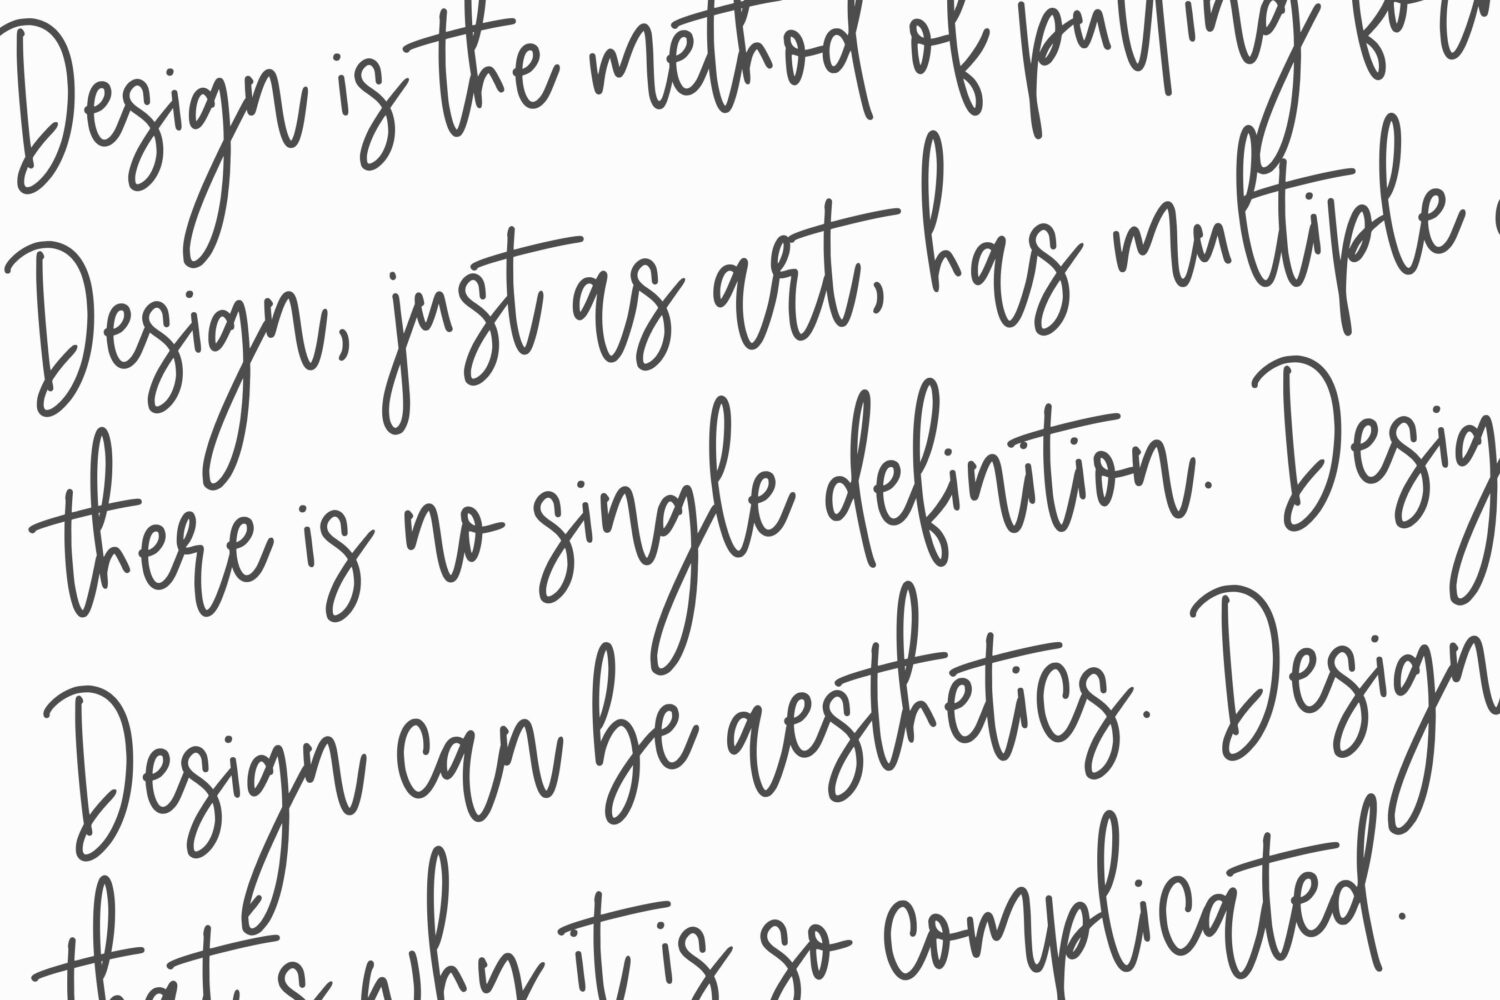 Design is the method of putting
Design, just as art, has multiple
there is no single definition. Desig
Design can be aesthetics. Design
that's why it is so complicated.